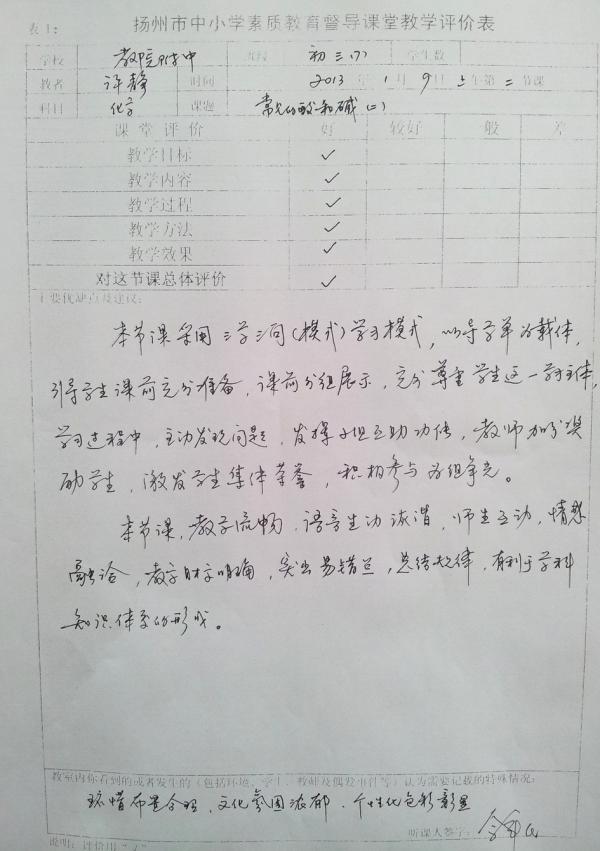 表1: 扬州市中小学素质教育督导课堂教学评价表
学校 教院附中 班级 初三(7) 学生数
教者 许静 时间 2013年1月9日上午第二节课
科目 化学 课题 常见的酸和碱(二)
课堂评价 好 较好 一般 差
教学目标 ✓
教学内容 ✓
教学过程 ✓
教学方法 ✓
教学效果 ✓
对这节课总体评价 ✓
主要优缺点及建议:
本节课采用三学三问(模式)学习模式,以导学单为载体,
引导学生课前充分准备,课前分组展示,充分尊重学生这一学习主体,
学习过程中,主动发现问题,发挥小组互助功能,教师加分奖
励学生,激发学生集体荣誉,积极参与为组争光。
本节课,教学流畅,语言生动诙谐,师生互动,情感
融洽,教学明确,突出易错点,总结规律,有利于学科
知识体系的形成。
教室内你看到的或者发生的(包括环境、学生、教师及偶发事件等)认为需要记载的特殊情况:
环境布置合理,文化氛围浓郁,个性化色彩彰显
听课人签字:
说明:评价用"✓"